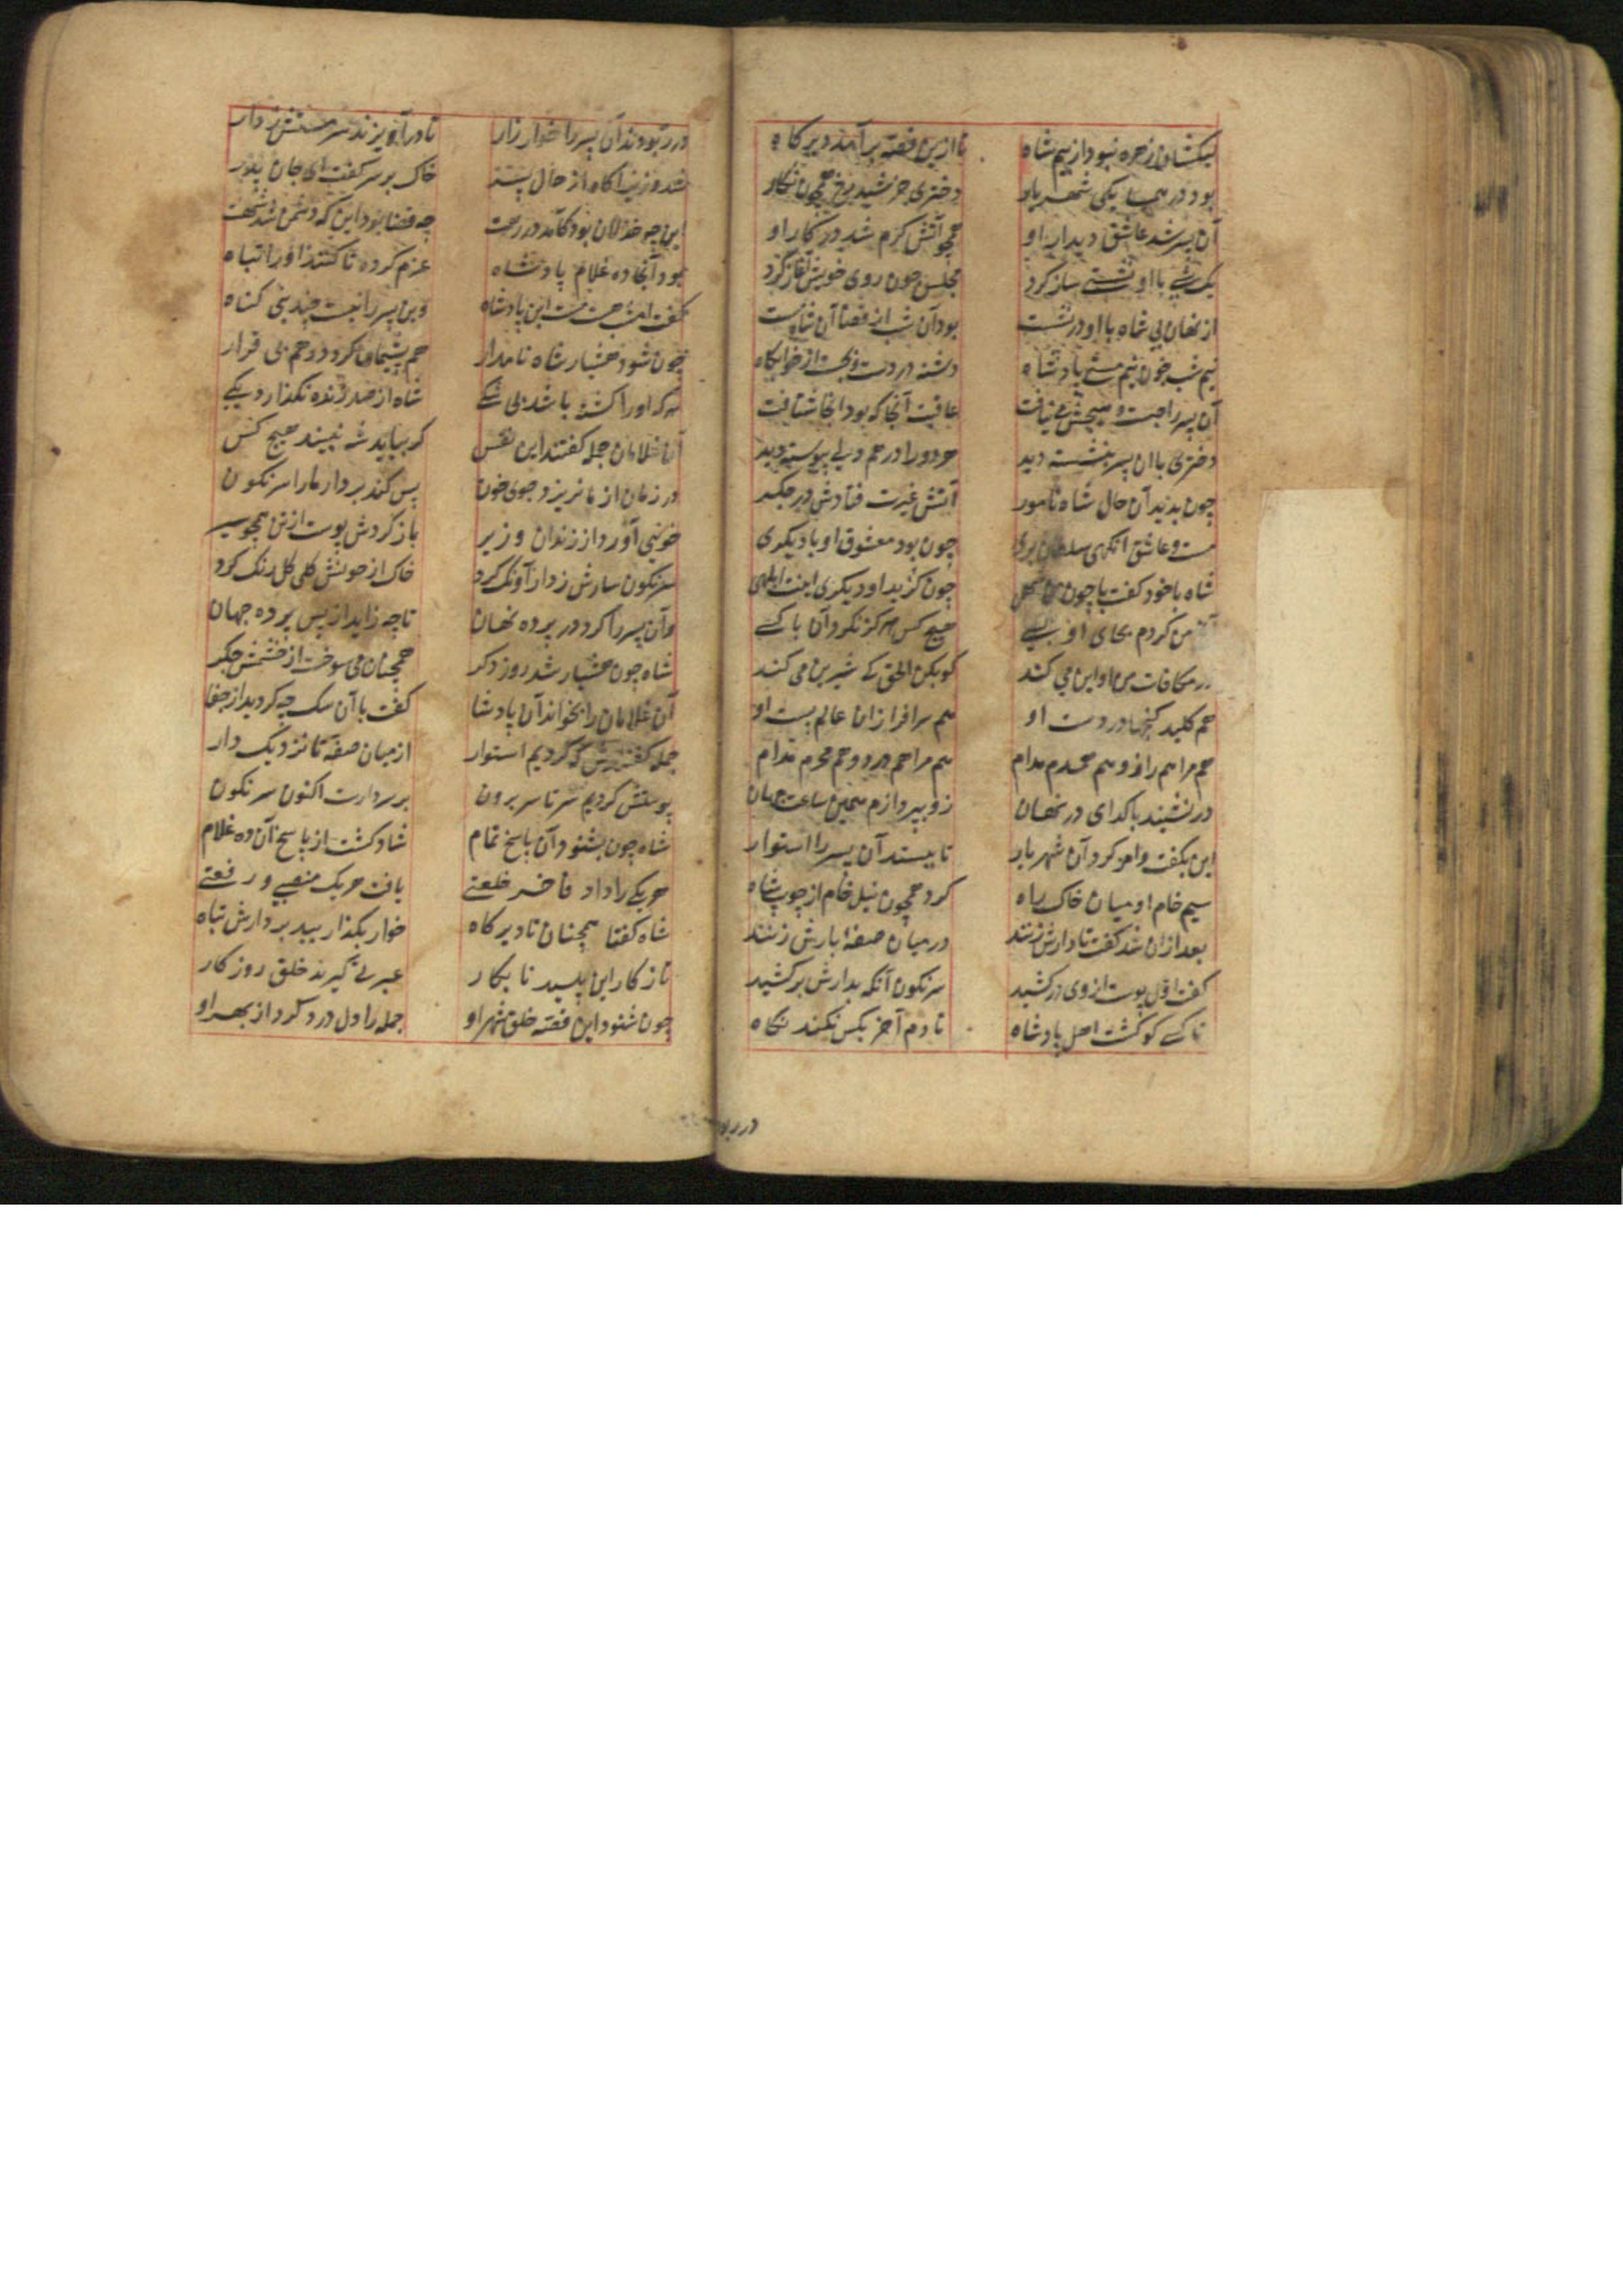 لیکشان زهره نبود از بیم شاه تا ازین قصه برآمد دیر کاه
بود در همسایکی شهریار دختری خورشید رخ همچون نکار
آن پسر شد عاشق دیدار او همچو آتش کرم شد در کار او
یک شبی با او نشستی ساز کرد مجلسی چون روی خویش آغاز کرد
از نهان بی شاه با او در نشست بود آن شب از قضا آن شاه مست
نیم شب چون نیم مستی پادشاه دشنه در دست و بجست از خوابکاه
آن پسر را جست و هیچش می نیافت عاقبت آنجا که بود آنجا شتافت
دختری با آن پسر بنشسته دید هر دو را در هم دلی پیوسته دید
چون بدید آن حال شاه نامور آتش غیرت فتادش در جکر
مست و عاشق آنکهی سلطان بری چون بود معشوق او با دیکری
شاه با خود کفت با چون من چون کزیند او دیکری اینت ابلهی
من کردم بجای او بسی هیچ کس هرکز نکرد آن با کسی
در مکافات من او این می کند کو بکن الحق که شیرین می کند
هم کلید کنجها در دست او هم سرافرازان عالم پست او
هم مرا هم راز و هم همدم مدام هم مرا هم درد و هم محرم مدام
در نشیند با کدای در نهان زو بپردازم همین ساعت جهان
این بکفت و امر کرد آن شهریار تا ببستند آن پسر را استوار
سیم خام او میان خاک راه کرد همچون نیل خام از چوب شاه
بعد از آن شد کفت تا دارش زنند در میان صفه بارش زنند
کفت اول پوست از وی درکشید سرنکون آنکه بدارش برکشید
تا کسی کو کشت اهل پادشاه تا دم آخر بکس نکند نکاه
در ربود
در ربودند آن پسر را خوار زار تا در آویزند سر مستش ز دار
شد وزیر آکاه از حال پسر خاک بر سر کفت ای جان پدر
این چه خذلان بود کآمد در رهت چه قضا بود این که دشمن شد شهت
بود آنجا ده غلام پادشاه عزم کرده تا کشند او را تباه
کفت امشب هست مست این پادشاه وین پسر را نیست چندینی کناه
چون شود هشیار شاه نامدار هم پشیمان کردد و هم بی قرار
هر که او را کشته باشد بی شکی شاه از صد زنده نکذارد یکی
آن غلامان جمله کفتند این نفس کر بیاید شه نبیند هیچ کس
در زمان از ما بریزد جوی خون پس کند بر دار ما را سرنکون
خونیی آورد از زندان وزیر باز کردش پوست از تن همچو سیر
سرنکون سارش ز دار آونک کرد خاک از خونش کلی کل رنک کرد
وآن پسر را کرد در پرده نهان تا چه زاید از پس پرده جهان
شاه چون هشیار شد روز دکر همچنان می سوخت از خشمش جکر
آن غلامان را بخواند آن پادشا کفت با آن سک چه کردید از جفا
جمله کفتندش که کردیم استوار از میان صفه تا نزدیک دار
پوستش کردیم سر تا سر برون بر سر دارست اکنون سرنکون
شاه چون بشنود آن پاسخ تمام شاد کشت از پاسخ آن ده غلام
هر یکی را داد فاخر خلعتی یافت هر یک منصبی و رفعتی
شاه کفتا همچنان تا دیر کاه خوار بکذارید بر دارش تباه
تا ز کار این پلید نابکار عبرتی کیرند خلق روزکار
چون شنود این قصه خلق شهر او جمله را دل درد کرد از بهر او